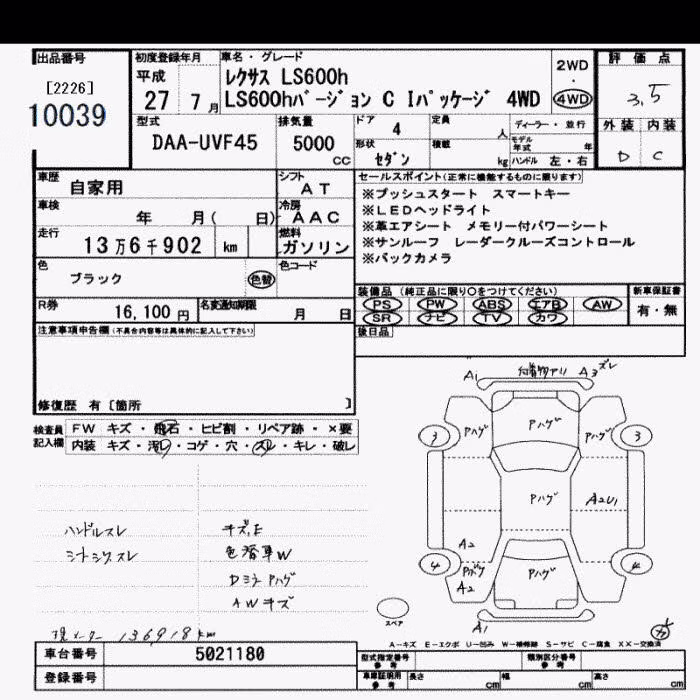 出品番号 初度登録年月 車名・グレード 2WD 評価点
[2226] 平成 レクサス LS600h ・
10039 27 7月 LS600hバージョン C Iパッケージ 4WD 4WD 3.5
型式 排気量 ドア 定員 ディーラー・並行 外装 内装
DAA-UVF45 5000 4 人 モデル年式 年 D C
cc 形状 セダン 積載 kg ハンドル 左・右
車歴 自家用 シフト AT セールスポイント(正常に機能するものに限ります)
車検 年 月( 日) 冷房 AAC ※プッシュスタート スマートキー
※LEDヘッドライト
走行 13万6千902 km 燃料 ガソリン ※革エアシート メモリー付パワーシート
※サンルーフ レーダークルーズコントロール
色 ブラック 色替 色コード ※バックカメラ
装備品 (純正品に限り○をつけてください) 新車保証書
R券 16,100円 名変通知期限 月 日 PS PW ABS エアB AW 有・無
SR ナビ TV カワ
注意事項申告欄(不具合内容等は具体的に記入して下さい) 後日品
修復歴 有 [箇所 ]
検査員記入欄 FW キズ・飛石・ヒビ割・リペア跡・×要
内装 キズ・汚レ・コゲ・穴・スレ・キレ・破レ
A1 付着物アリ A3 ズレ
Pハゲ Pハゲ Pハゲ
3 3
Pハゲ A2U1
A2
4 Pハゲ Pハゲ 4
A2
A1
ハンドルスレ キズ,E
シートシワスレ 色替車W
Dミラー Pハゲ
AWキズ
スペア
現メーター 136918km
A-キズ E-エクボ U-凹み W-補修跡 S-サビ C-腐食 XX-交換済
車台番号 5021180 型式指定番号 参考 類別区分番号 参考
登録番号 車庫証明用 参考 長さ cm 幅 cm 高さ cm